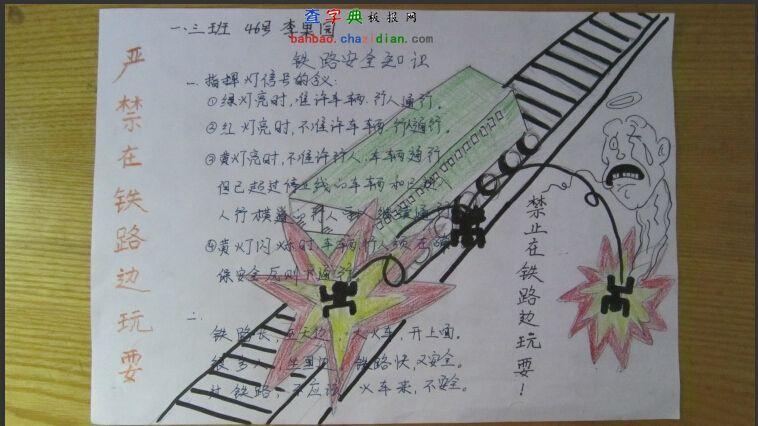 查字典板报网
banbao.chazidian.com
一.三班 46号 李果园
铁路安全知识
严禁在铁路边玩耍
一.指挥灯信号的含义:
①绿灯亮时,准许车辆.行人通行。
②红灯亮时,不准许车辆.行人通行。
③黄灯亮时,不准许行人.车辆通行
但已超过停止线的车辆和已进入
人行横道的行人 继续通行
④黄灯闪烁时,车辆.行人须在确
保安全原则下通行
二.
铁路长, 火车,开上面。
铁路快,又安全。
铁路, 不应该 火车来,不安全。
禁止在铁路边玩耍!